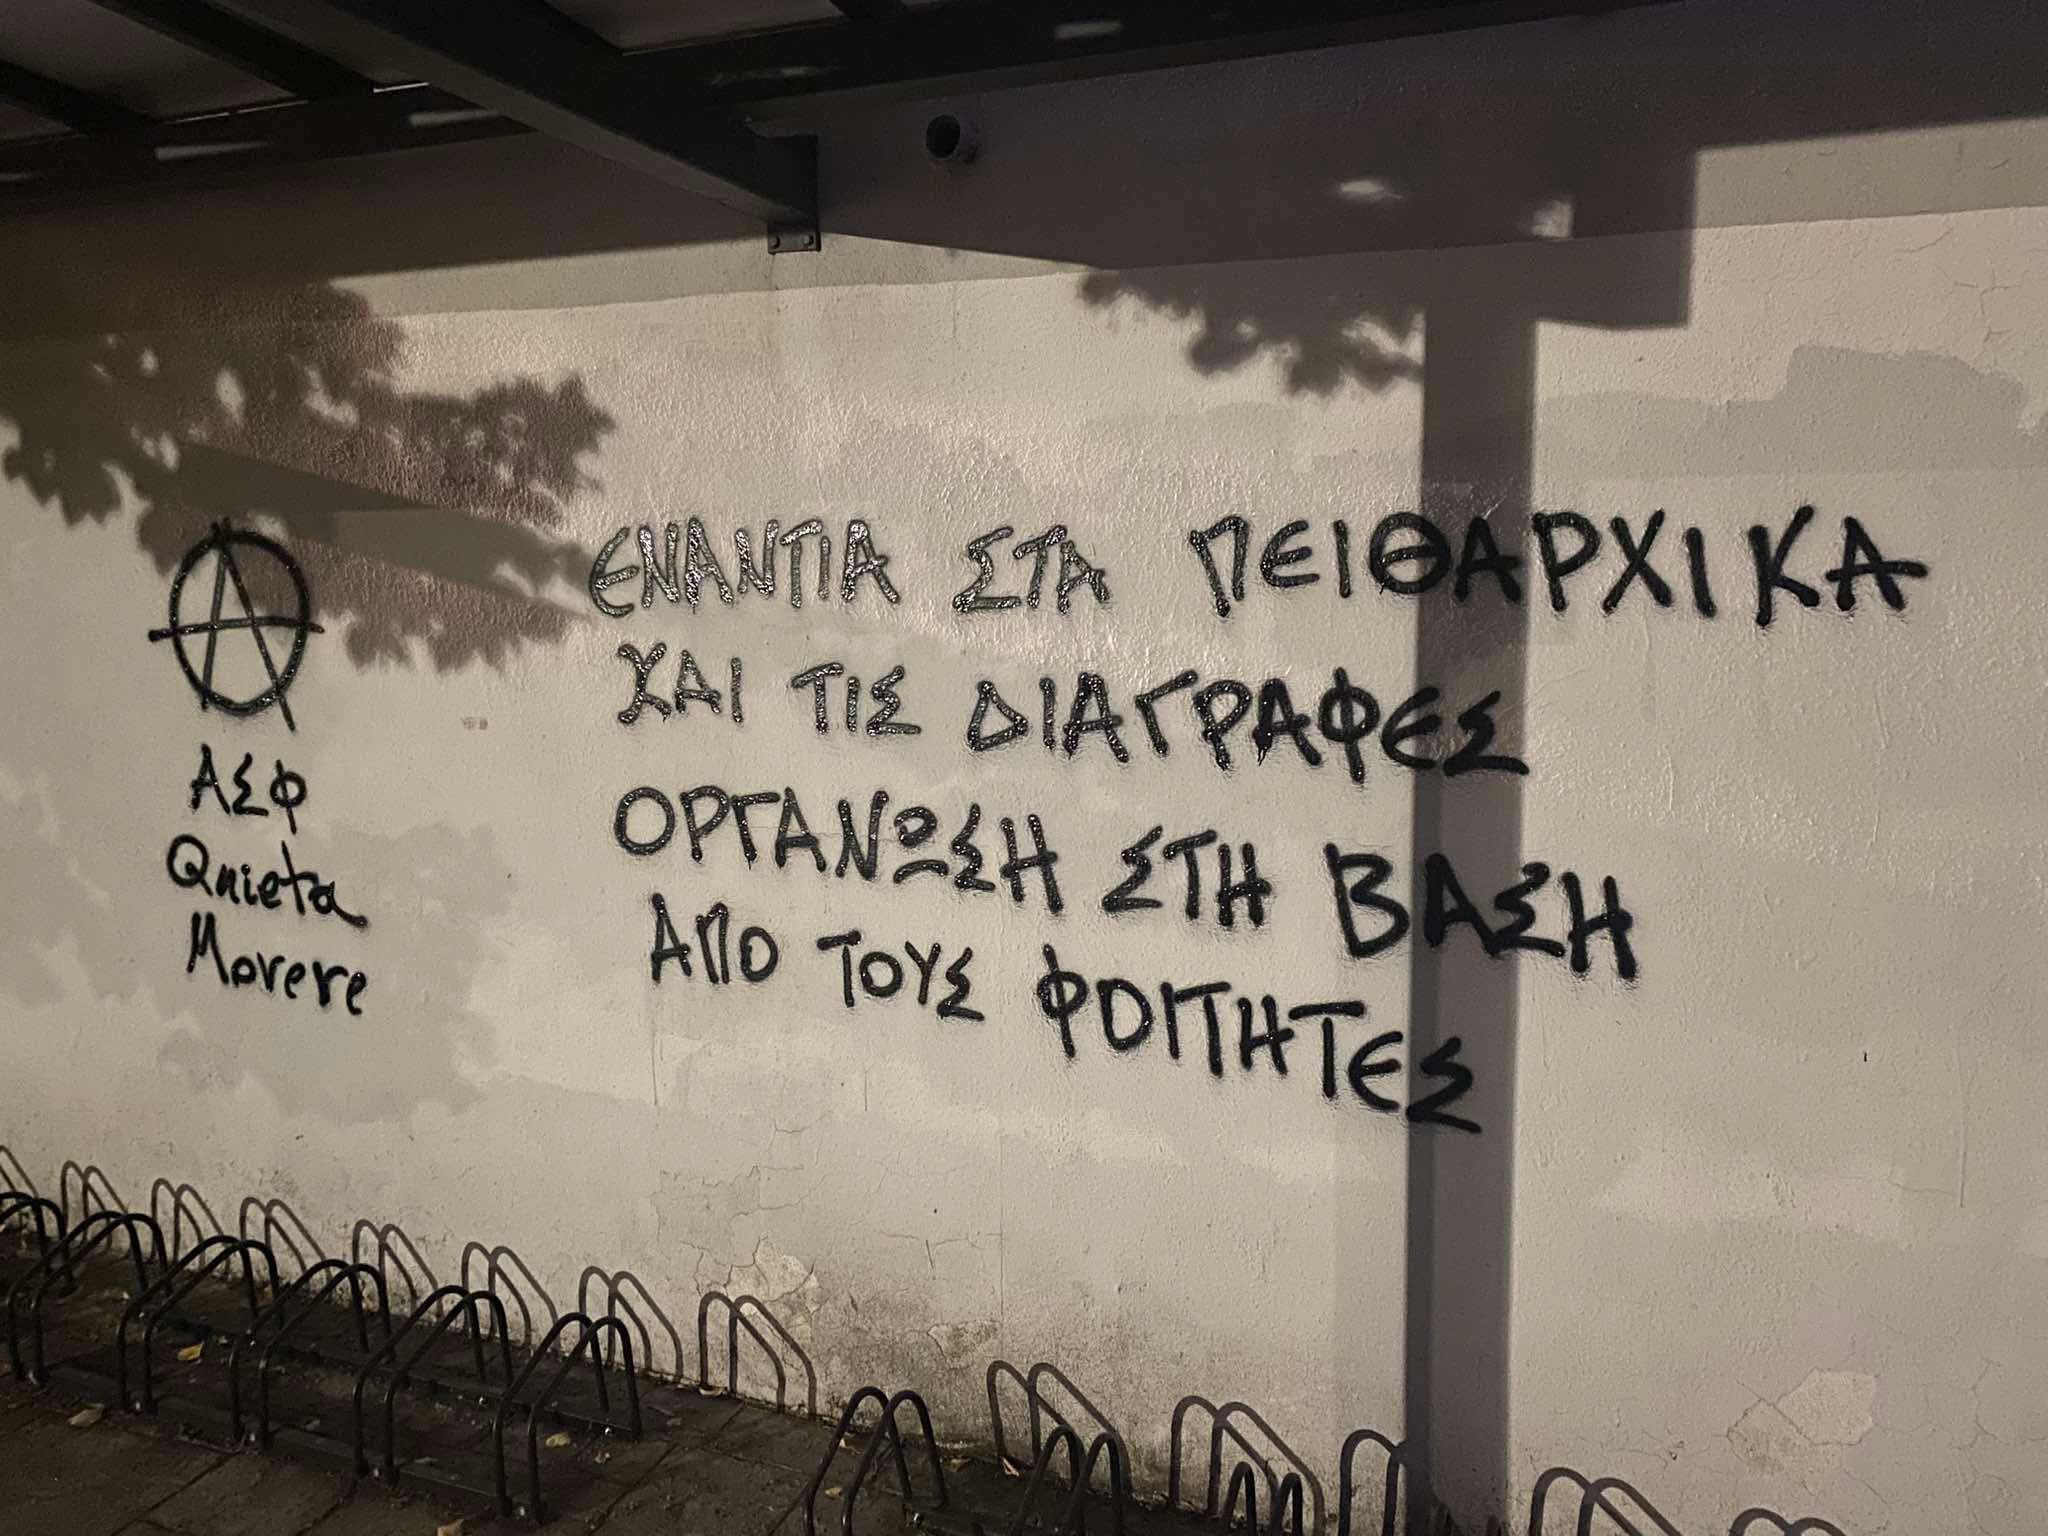 ΑΣΦ
Quieta
Movere
ΕΝΑΝΤΙΑ ΣΤΑ ΠΕΙΘΑΡΧΙΚΑ
ΚΑΙ ΤΙΣ ΔΙΑΓΡΑΦΕΣ
ΟΡΓΑΝΩΣΗ ΣΤΗ ΒΑΣΗ
ΑΠΟ ΤΟΥΣ ΦΟΙΤΗΤΕΣ